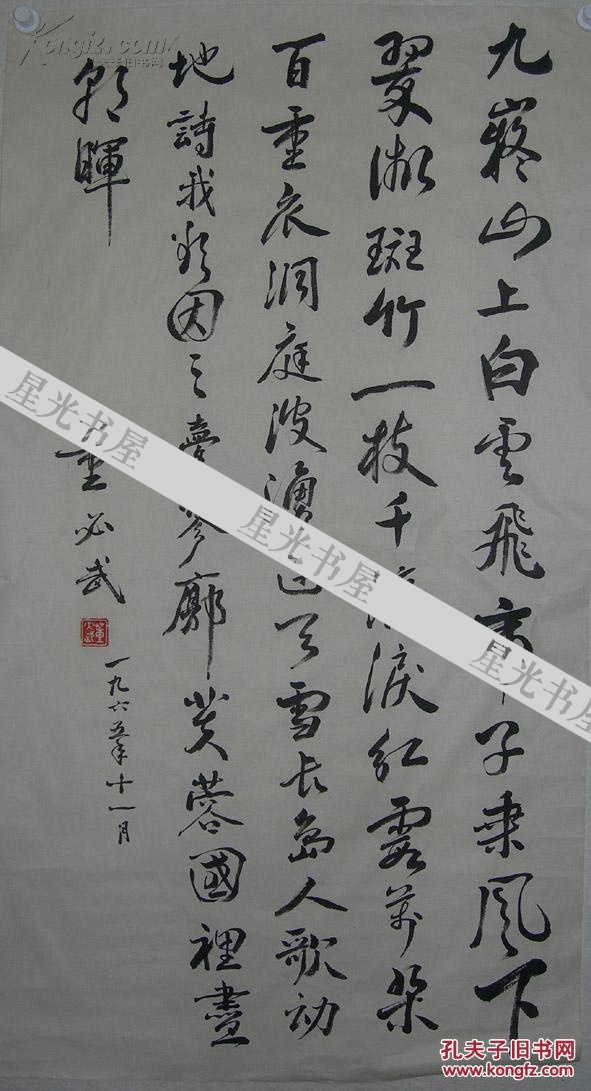 九嶷山上白雲飛帝子乘風下
翠微斑竹一枝千滴淚紅霞萬朵
百重衣洞庭波湧連天雪長島人歌動
地詩我欲因之夢寥廓芙蓉國裡盡
朝暉
董必武
一九六五年十一月
星光书屋
星光书屋
星光书屋
孔夫子旧书网
www.kongfz.com